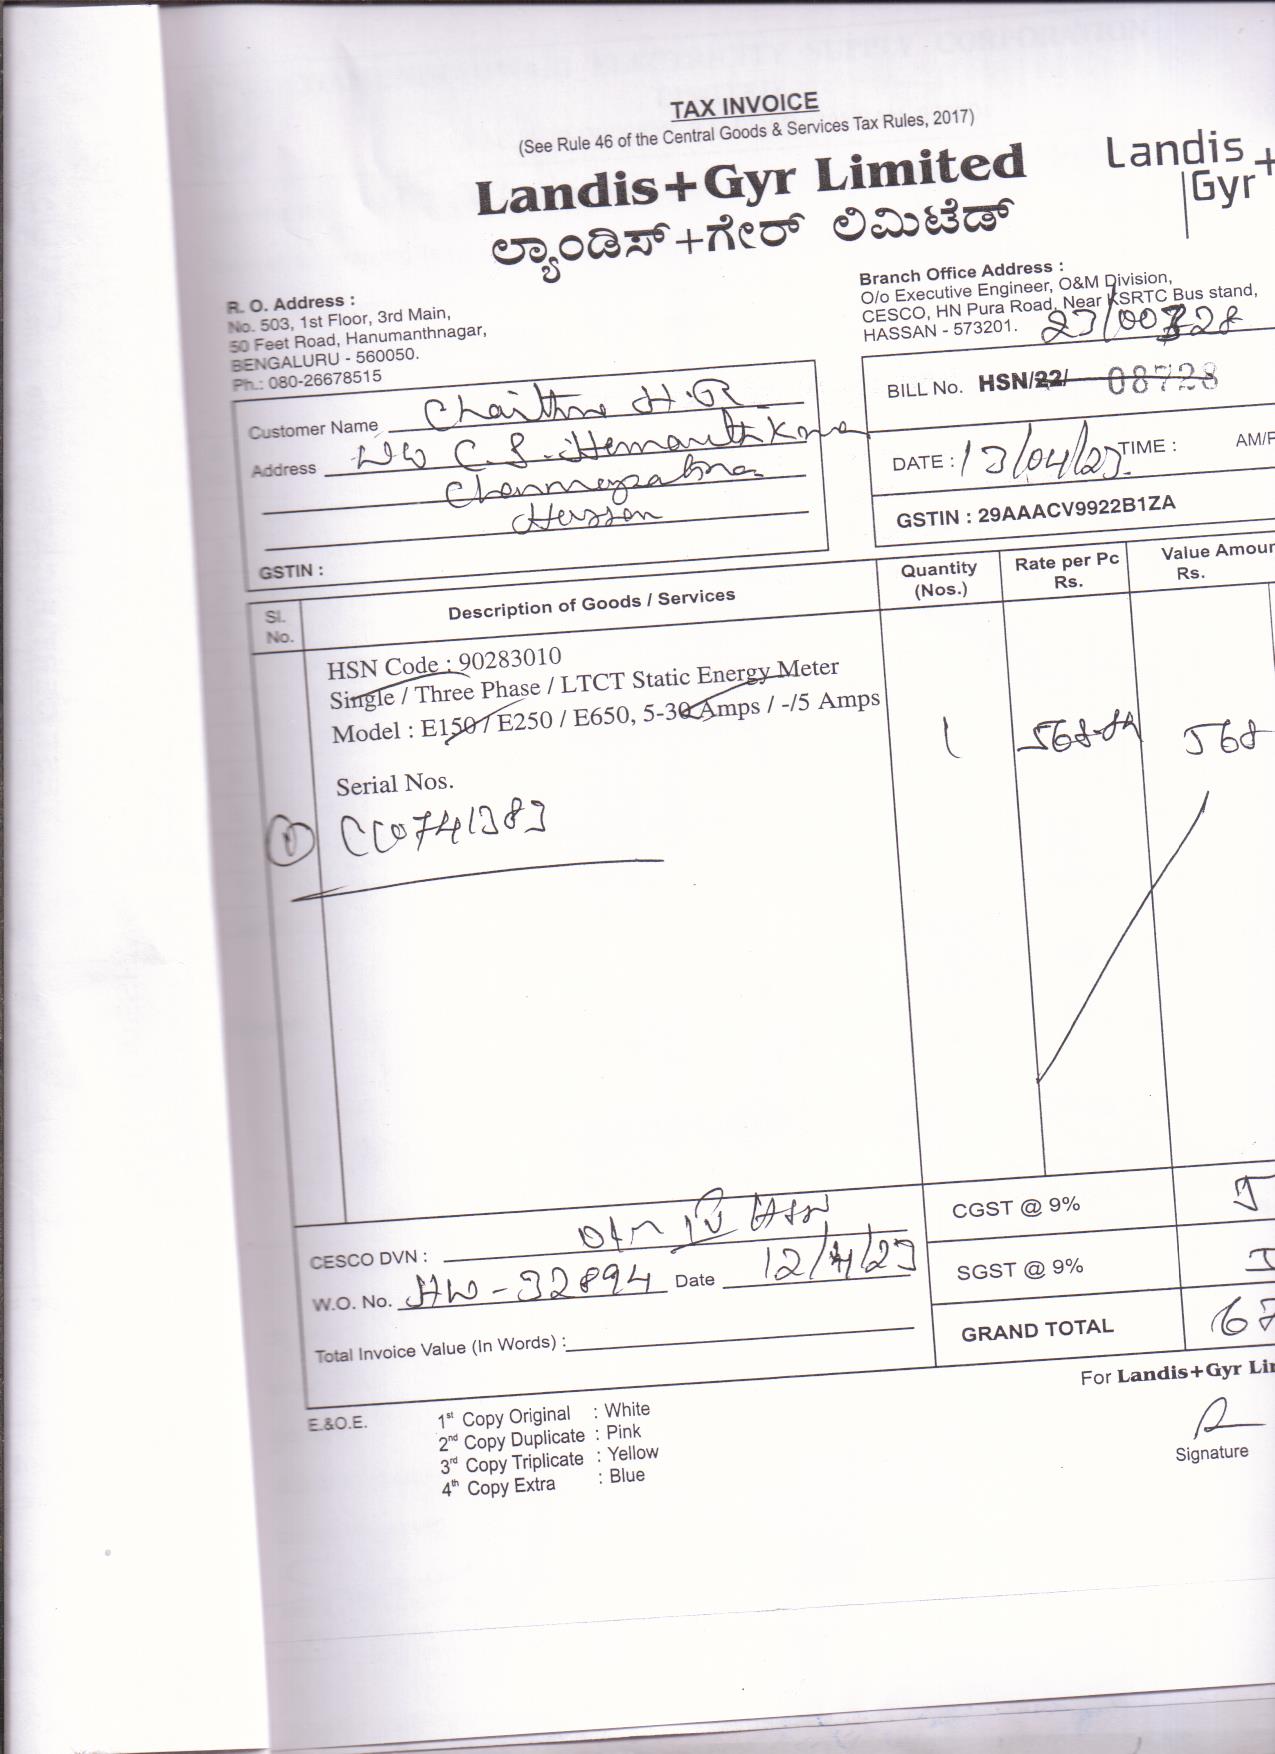 TAX INVOICE
(See Rule 46 of the Central Goods & Services Tax Rules, 2017)
Landis+Gyr Limited
ಲ್ಯಾಂಡಿಸ್+ಗೇರ್ ಲಿಮಿಟೆಡ್
Landis
Gyr+
R. O. Address :
No. 503, 1st Floor, 3rd Main,
50 Feet Road, Hanumanthnagar,
BENGALURU - 560050.
Ph.: 080-26678515
Branch Office Address :
O/o Executive Engineer, O&M Division,
CESCO, HN Pura Road, Near KSRTC Bus stand,
HASSAN - 573201.
Customer Name Chaithra H.R
Address W/o C.S. Hemanth Kumar
Channarayapatna
Hassan
GSTIN :
23/00728
BILL No. HSN/22/ 08728
DATE : 13/04/23 TIME : AM/P
GSTIN : 29AAACV9922B1ZA
Sl. No. Description of Goods / Services Quantity (Nos.) Rate per Pc Rs. Value Amoun Rs.
HSN Code : 90283010
Single / Three Phase / LTCT Static Energy Meter
Model : E150 / E250 / E650, 5-30 Amps / -/5 Amps
1 568 568
Serial Nos.
1 CC0741383
CGST @ 9% 5
SGST @ 9% 5
GRAND TOTAL 67
CESCO DVN : HSN
W.O. No. HW-32894 Date 12/4/23
Total Invoice Value (In Words) :
For Landis+Gyr Lin
Signature
E.&O.E.
1st Copy Original : White
2nd Copy Duplicate : Pink
3rd Copy Triplicate : Yellow
4th Copy Extra : Blue